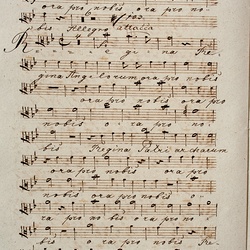 ora pro nobis ora pro no-
bis Allegro
Regina
gina Angelorum ora pro nobis
ora pro nobis ora pro
nobis ora pro no-
bis Regina Patriarcharum
ora pro nobis ora pro
nobis ora pro nobis o-
ra pro nobis ora pro no-
bis ora pro nobis Re-